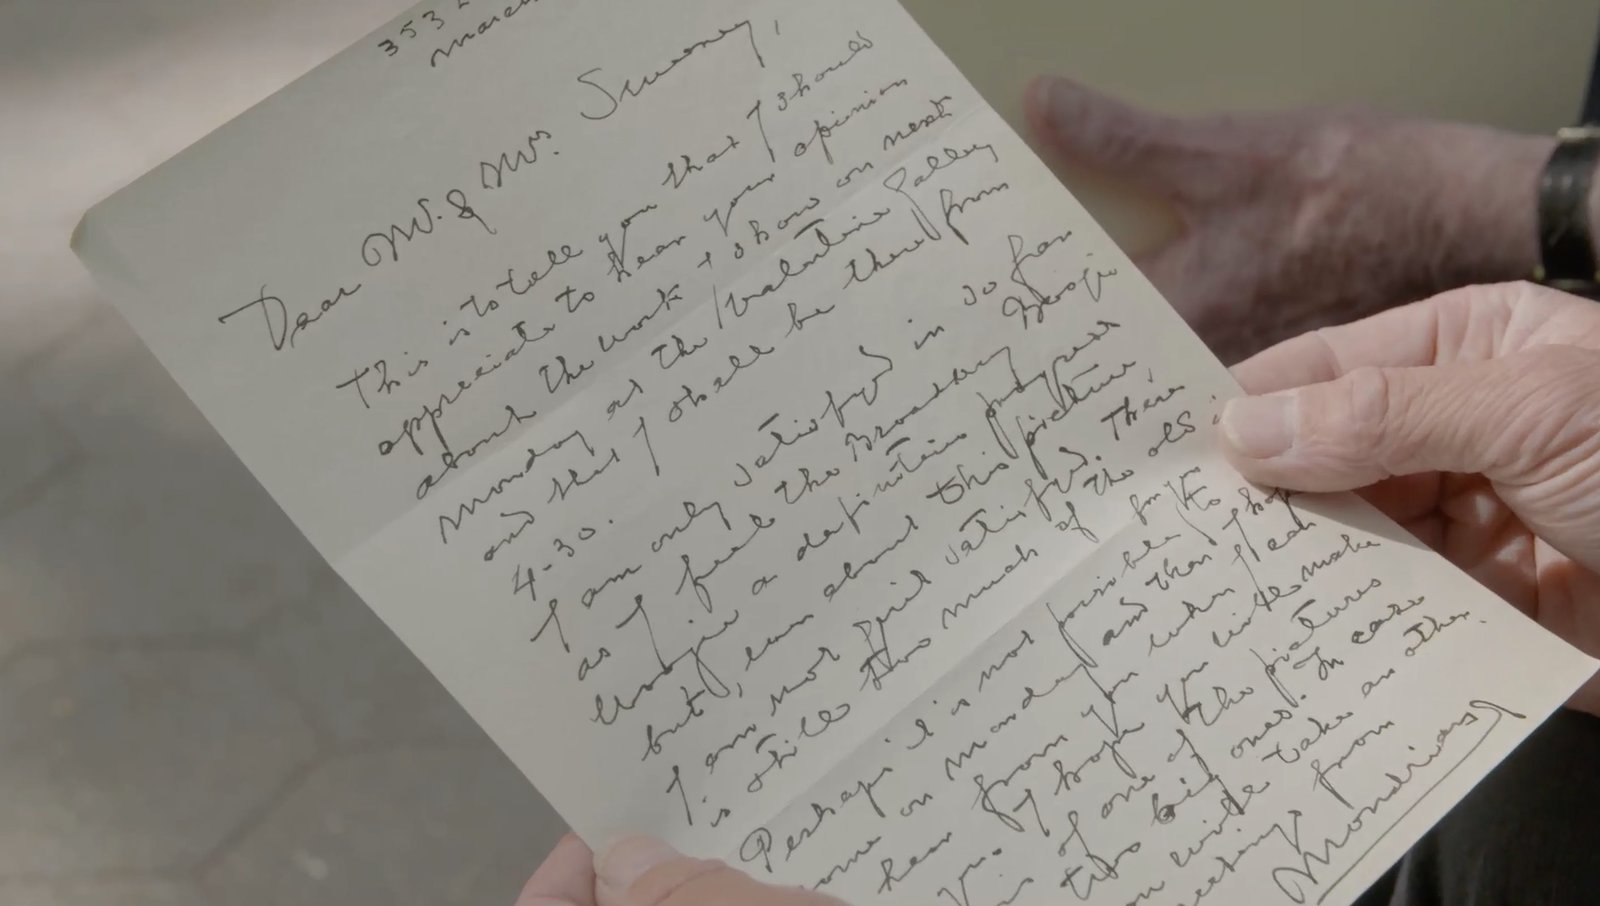 353
March
Dear Mr. & Mrs. Sweeney,
This is to tell you that I should
appreciate to hear your opinion
about the work I show on next
monday at the Valentine Galley
and that I shall be there from
4-30.
I am only satisfyed in so far
as I feel the Broadway Boogie
Woogie a definitive progress
but, even about this picture,
I am not quit satisfyed. There
is still too much of the old
Perhaps it is not possible for you to
come on monday and then I hope
hear from you when I can
you. I hope you will make
of one of the pictures
two big ones. In case
will take an other.
from
Mondrian